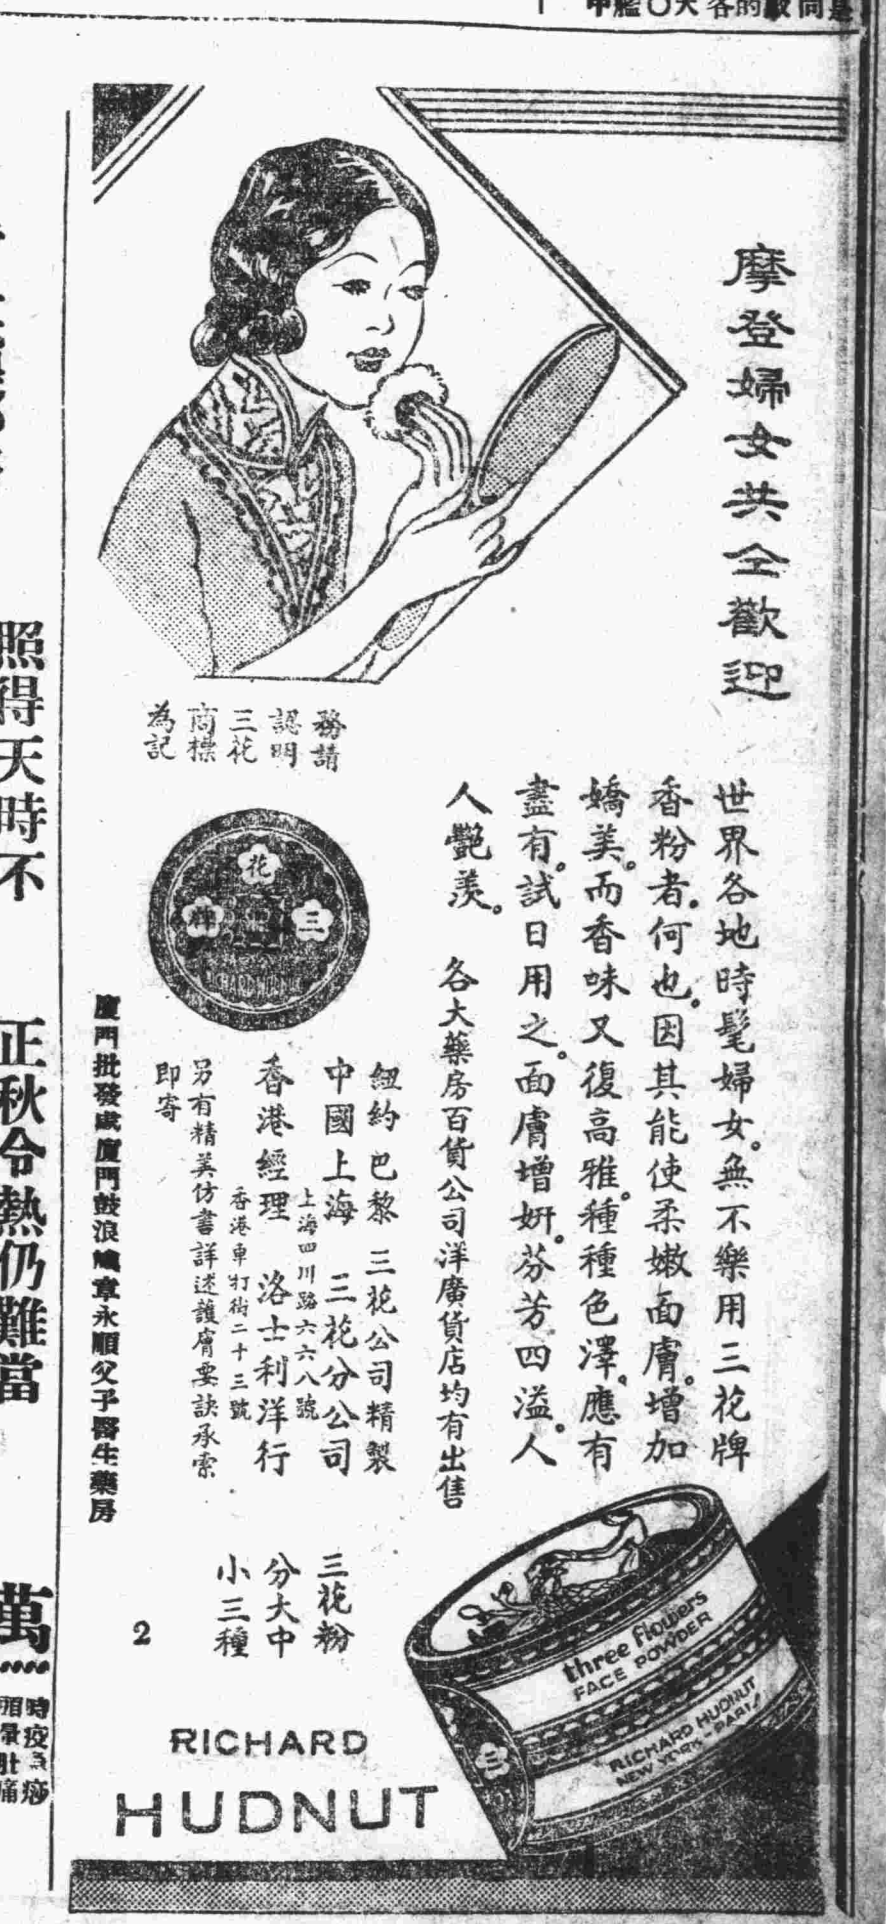 摩登婦女共仝歡迎
世界各地時髦婦女。無不樂用三花牌
香粉者。何也。因其能使柔嫩面膚。增加
嬌美。而香味又復高雅。種種色澤。應有
盡有。試日用之。面膚增妍。芬芳四溢。人
人艷羨。
各大藥房百貨公司洋廣貨店均有出售
務請
認明
三花
商標
為記
花
三
牌
紐約巴黎 三花公司精製
中國上海 三花分公司
上海四川路六六八號
香港經理 洛士利洋行
香港車打街二十三號
另有精美仿書詳述護膚要訣承索
即寄
廈門批發處廈門鼓浪嶼章永順父子醫生藥房
三花粉
分大中
小三種
2
three flowers
FACE POWDER
RICHARD HUDNUT
NEW YORK - PARIS
三
RICHARD
HUDNUT
照得天時不
正秋令熱仍難當
萬
時疫急痧